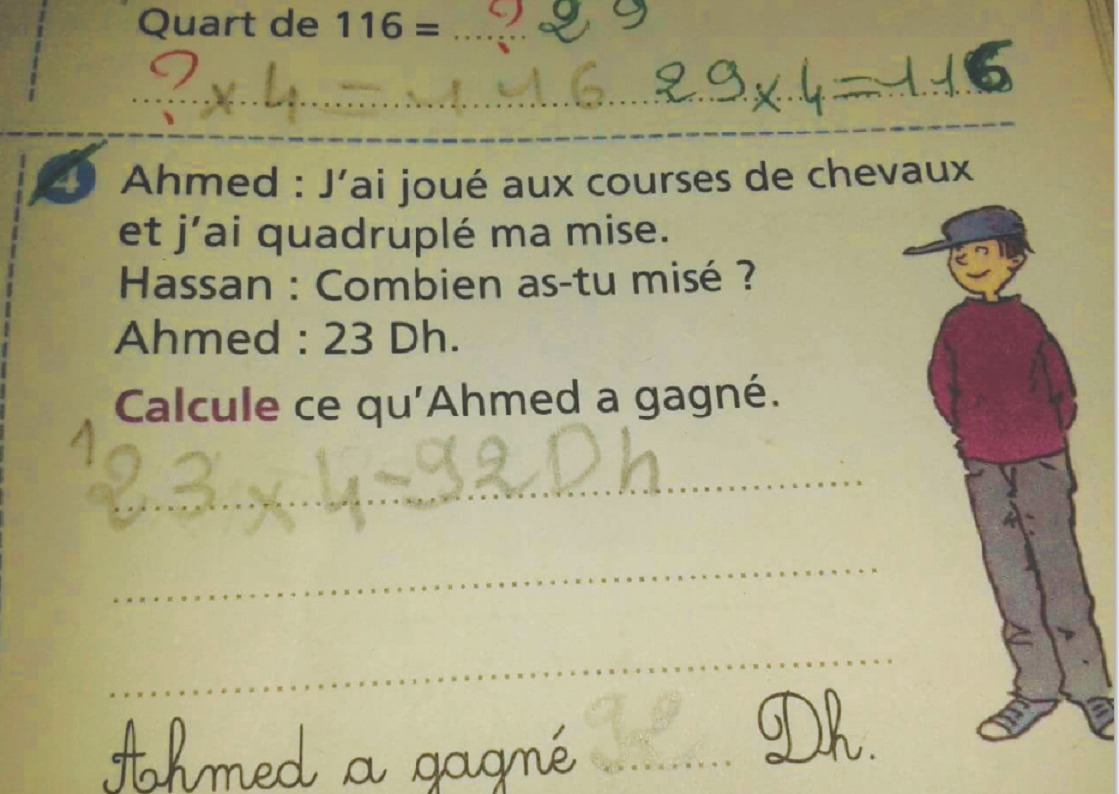 Quart de 116 = ....?.. 29
? x 4 = 116 29 x 4 = 116
4 Ahmed : J'ai joué aux courses de chevaux
et j'ai quadruplé ma mise.
Hassan : Combien as-tu misé ?
Ahmed : 23 Dh.
Calcule ce qu'Ahmed a gagné.
1
23 x 4 = 92 Dh
Ahmed a gagné 92 Dh.